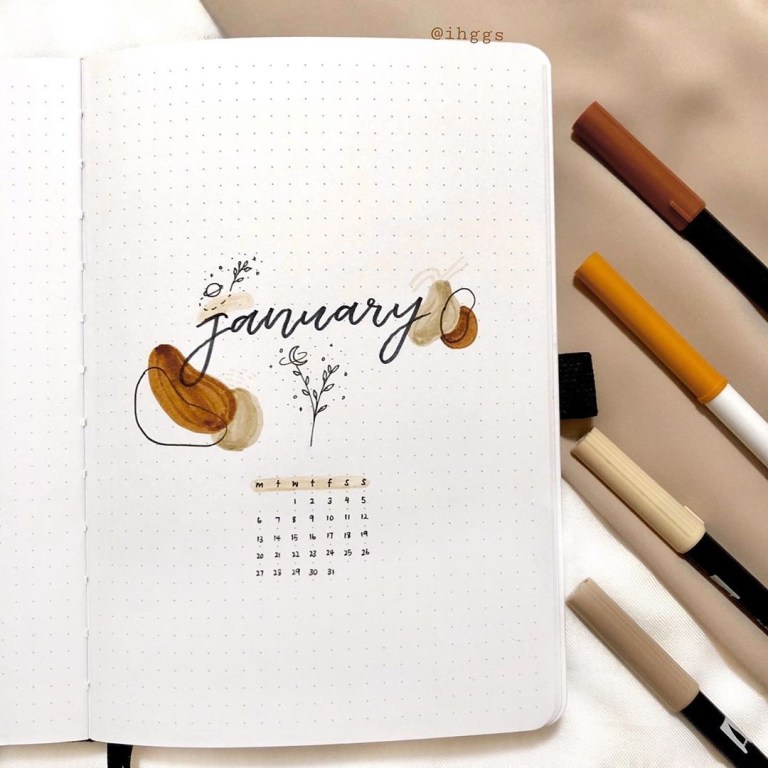 @ihggs
january
m t w t f s s
1 2 3 4 5
6 7 8 9 10 11 12
13 14 15 16 17 18 19
20 21 22 23 24 25 26
27 28 29 30 31